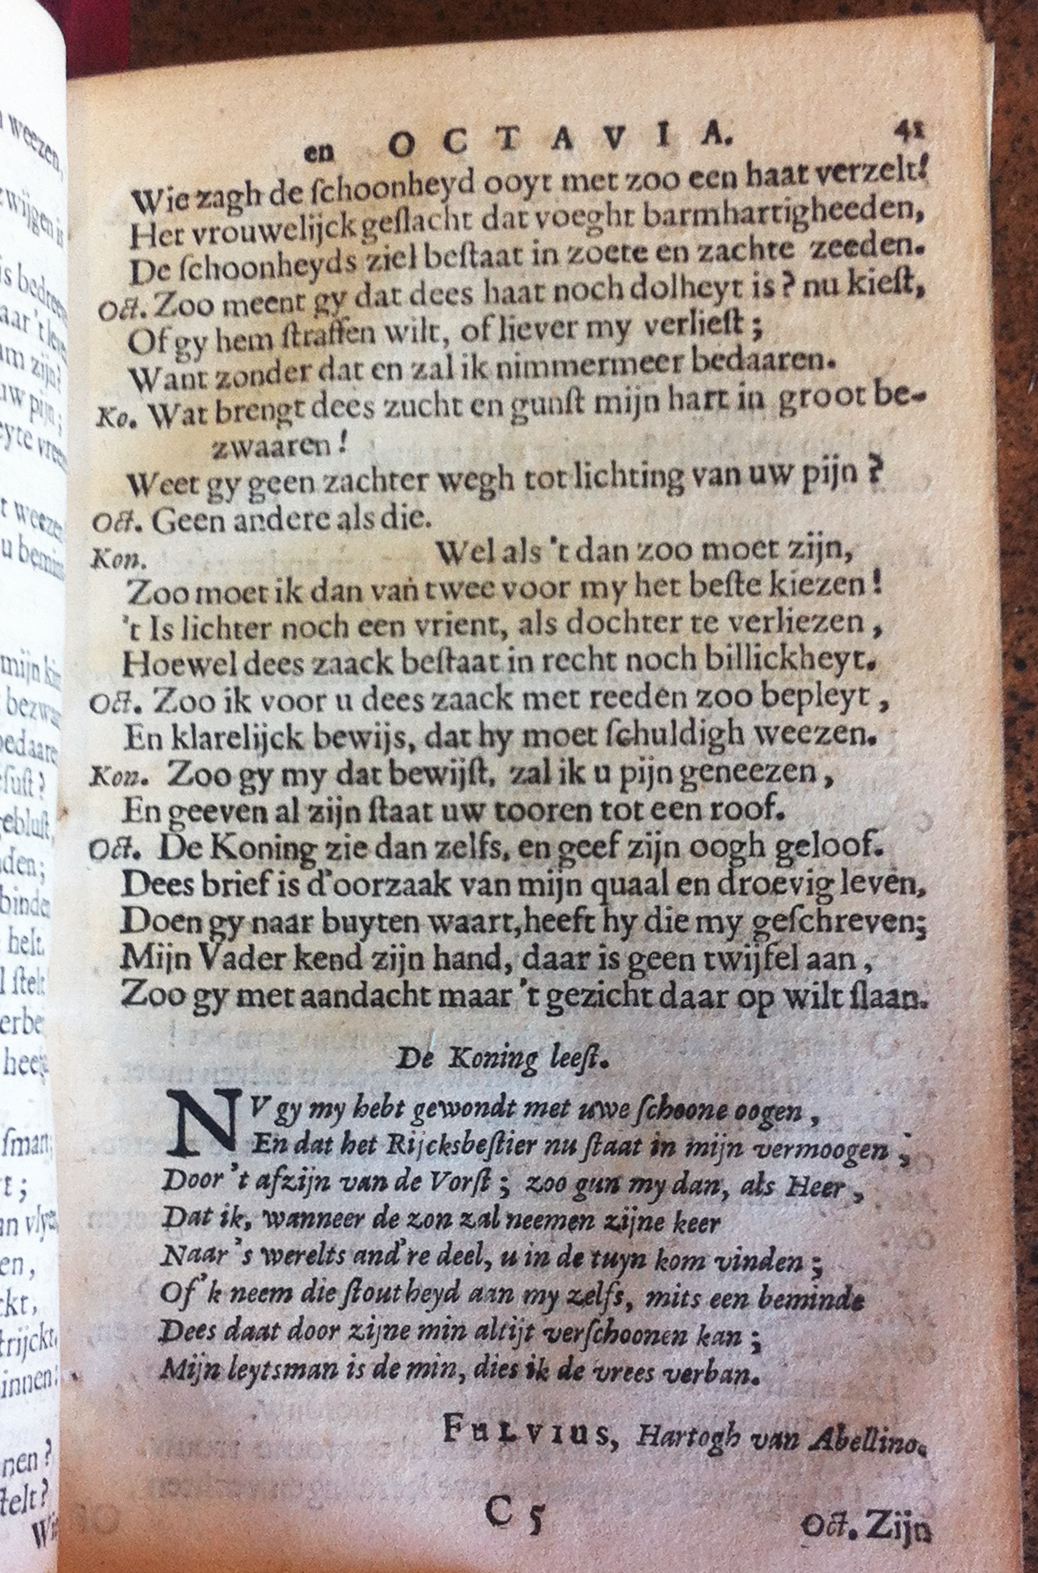 en OCTAVIA. 41
Wie zagh de ſchoonheyd ooyt met zoo een haat verzelt!
Het vrouwelijck geſlacht dat voeght barmhartigheeden,
De ſchoonheyds ziel beſtaat in zoete en zachte zeeden.
Oct. Zoo meent gy dat dees haat noch dolheyt is? nu kieſt,
Of gy hem ſtraffen wilt, of liever my verlieſt;
Want zonder dat en zal ik nimmermeer bedaaren.
Ko. Wat brengt dees zucht en gunſt mijn hart in groot be-
zwaaren!
Weet gy geen zachter wegh tot lichting van uw pijn?
Oct. Geen andere als die.
Kon. Wel als 't dan zoo moet zijn,
Zoo moet ik dan van twee voor my het beſte kiezen!
't Is lichter noch een vrient, als dochter te verliezen,
Hoewel dees zaack beſtaat in recht noch billickheyt.
Oct. Zoo ik voor u dees zaack met reeden zoo bepleyt,
En klarelijck bewijs, dat hy moet ſchuldigh weezen.
Kon. Zoo gy my dat bewijſt, zal ik u pijn geneezen,
En geeven al zijn ſtaat uw tooren tot een roof.
Oct. De Koning zie dan zelfs, en geef zijn oogh geloof.
Dees brief is d'oorzaak van mijn quaal en droevig leven,
Doen gy naar buyten waart, heeft hy die my geſchreven;
Mijn Vader kend zijn hand, daar is geen twijfel aan,
Zoo gy met aandacht maar 't gezicht daar op wilt ſlaan.
De Koning leeſt.
NV gy my hebt gewondt met uwe ſchoone oogen,
En dat het Rijcksbeſtier nu ſtaat in mijn vermoogen;
Door 't afzijn van de Vorſt; zoo gun my dan, als Heer,
Dat ik, wanneer de zon zal neemen zijne keer
Naar 's werelts and're deel, u in de tuyn kom vinden;
Of 'k neem die ſtoutheyd aan my zelfs, mits een beminde
Dees daat door zijne min altijt verſchoonen kan;
Mijn leytsman is de min, dies ik de vrees verban.
FULVIUS, Hartogh van Abellino.
C 5 Oct. Zijn